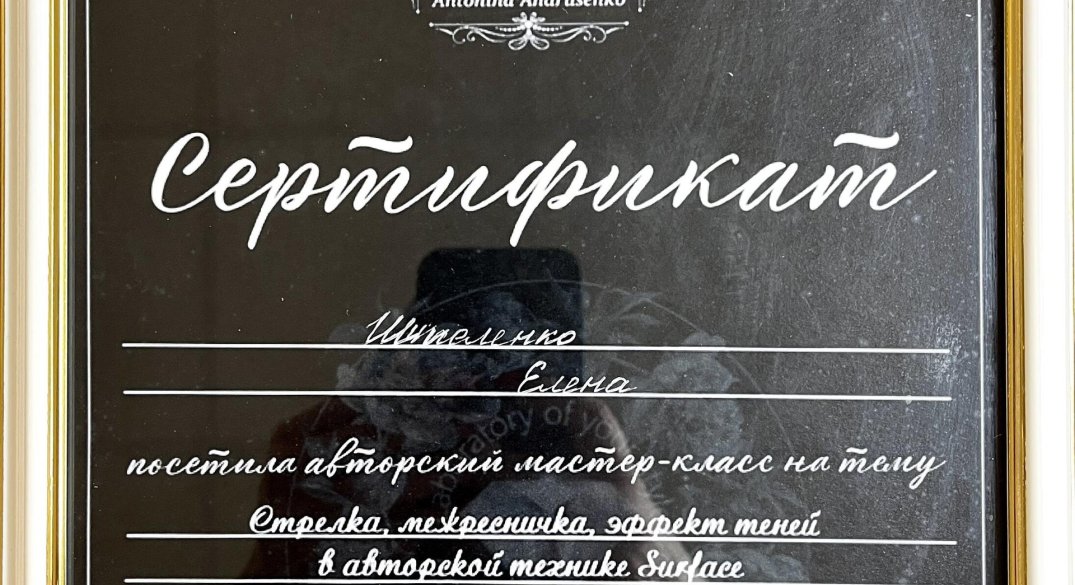 Antonina Andrusenko
Сертификат
Елена
посетила авторский мастер-класс на тему
Стрелка, межресничка, эффект теней
в авторской технике Surface